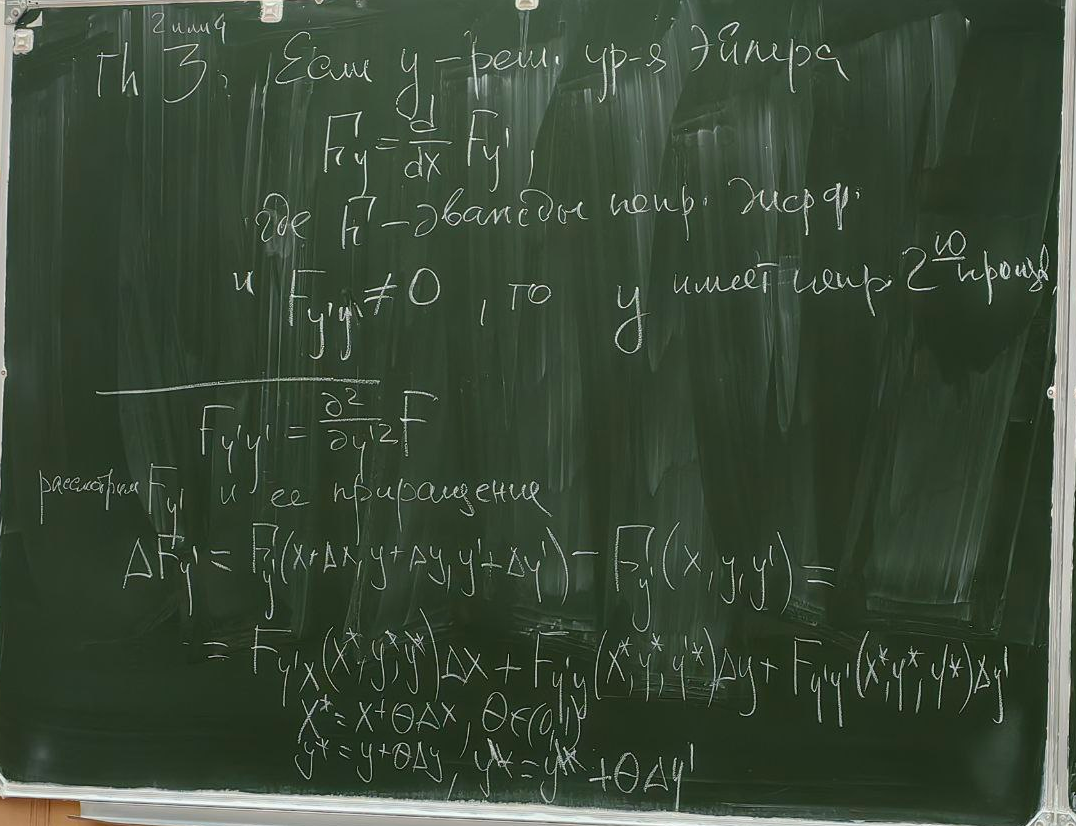 2 или 4
Th 3. Если y – реш. ур-я Эйлера
F_y = d/dx F_y',
где F – дважды непр. дифф.
и F_y'y' ≠ 0, то y имеет непр. 2^ю произв.
F_y'y' = ∂²/∂y'² F
рассмотрим F_y' и ее приращение
ΔF_y' = F_y'(x+Δx, y+Δy, y'+Δy') − F_y'(x, y, y') =
= F_y'x(x*, y*, y'*)Δx + F_y'y(x*, y*, y'*)Δy + F_y'y'(x*, y*, y'*)Δy'
x* = x+θΔx, θ∈(0,1)
y* = y+θΔy, y'* = y'* + θΔy'